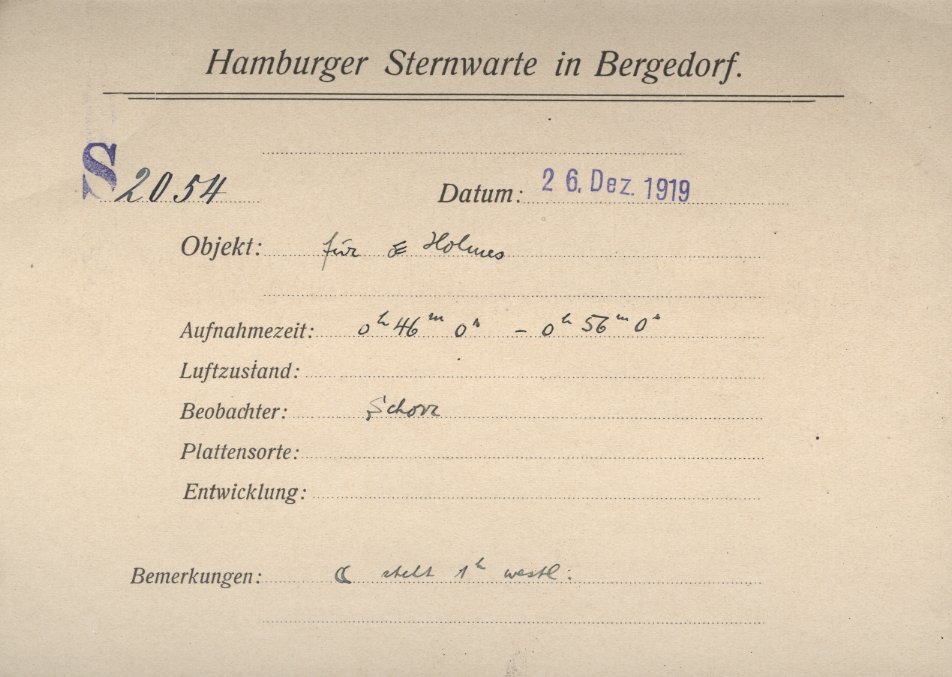 Hamburger Sternwarte in Bergedorf.
S 2054 Datum: 26. Dez. 1919
Objekt: für Holmes
Aufnahmezeit: 0ʰ 46ᵐ 0ˢ - 0ʰ 56ᵐ 0ˢ
Luftzustand:
Beobachter: Schorr
Plattensorte:
Entwicklung:
Bemerkungen: ☾ steht 1ʰ westl.